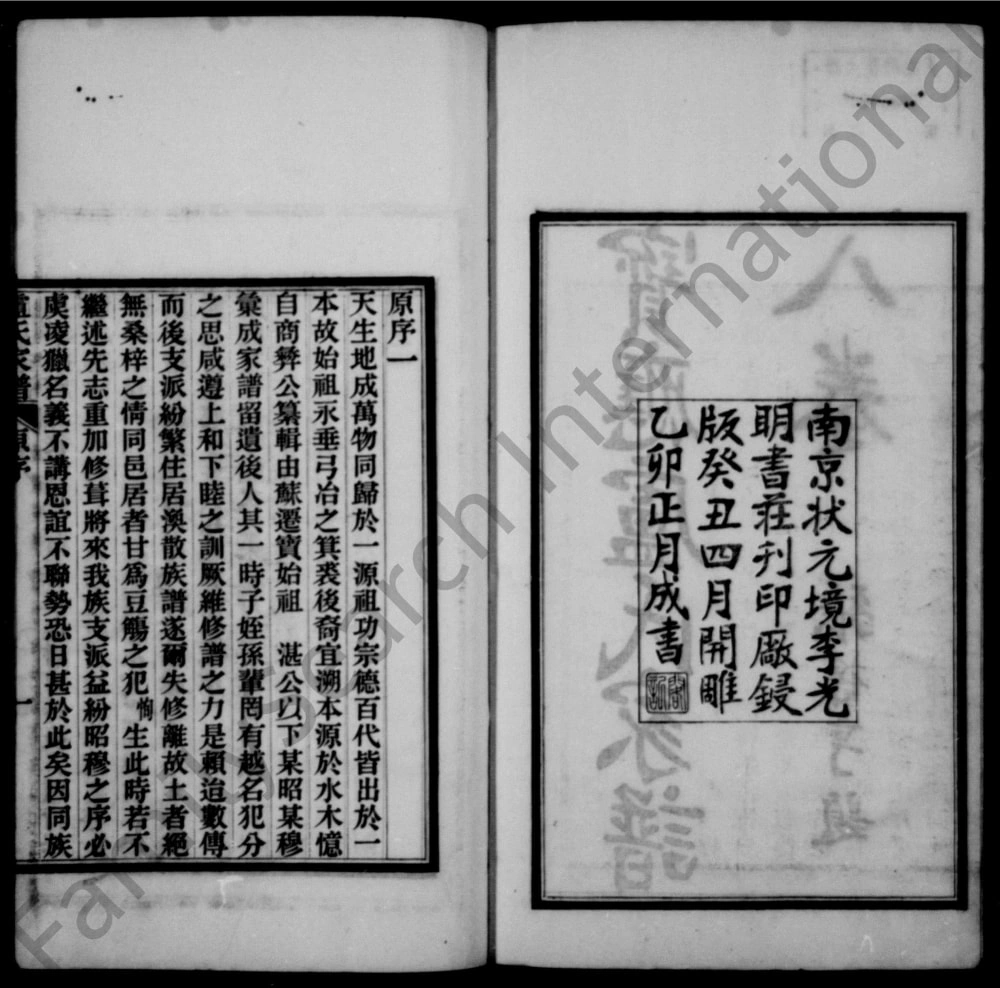 南京状元境李光
明書莊刋印厰鋟
版癸丑四月開雕
乙卯正月成書
原序一
天生地成萬物同歸於一源祖功宗德百代皆出於一
本故始祖永垂弓冶之箕裘後裔宜溯本源於水木憶
自商彝公纂輯由蘇遷寶始祖 湛公以下某昭某穆
彙成家譜留遺後人其一時子姪孫輩罔有越名犯分
之思咸遵上和下睦之訓厥維修譜之力是賴迨數傳
而後支派紛繁住居渙散族譜遂爾失修離故土者絕
無桑梓之情同邑居者甘爲豆觴之犯 恂 生此時若不
繼述先志重加修葺將來我族支派益紛昭穆之序必
虞凌獵名義不講恩誼不聯勢恐日甚於此矣因同族
氏家譜 原序 一
Family Search International